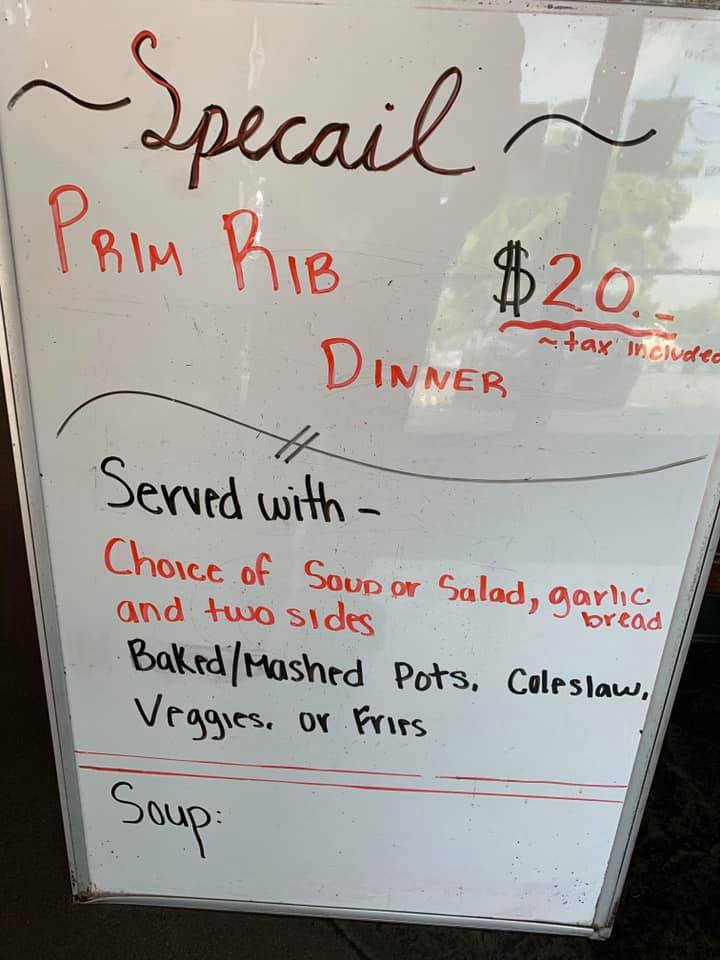 ~ Specail ~
PRIM RIB
$20.-
~tax included
DINNER
Served with -
Choice of Soup or Salad, garlic bread
and two sides
Baked/Mashed Pots. Coleslaw.
Veggies. or Fries
Soup: